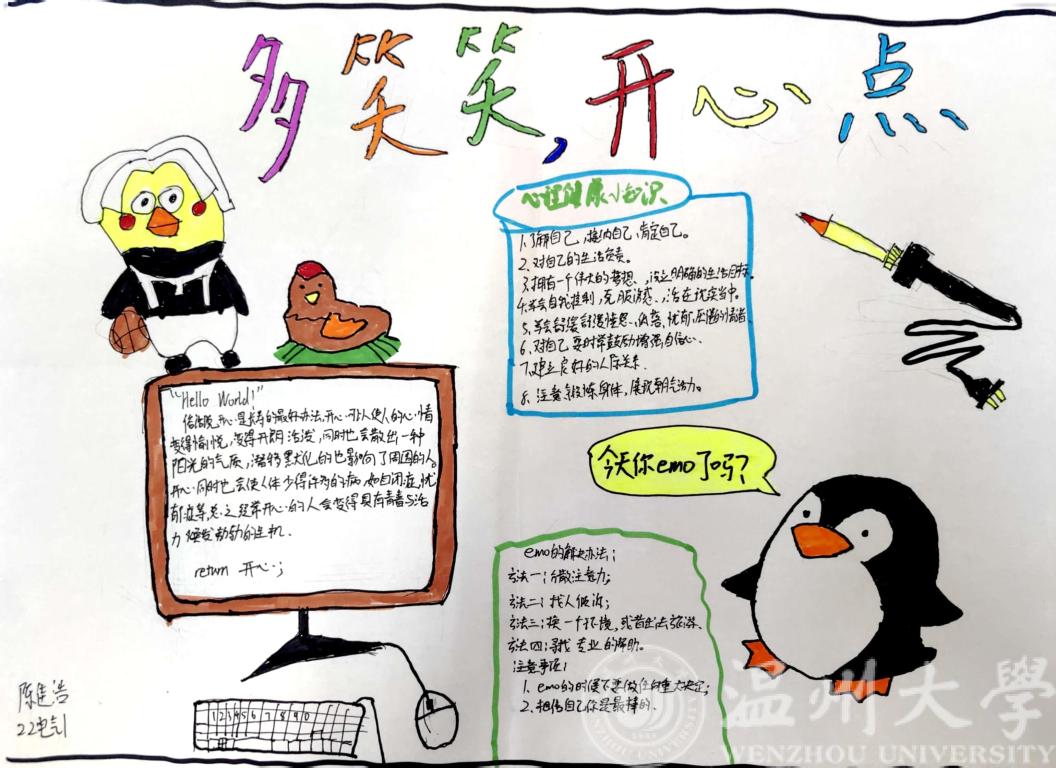 多笑笑,开心点
心理健康小知识
1、了解自己,接纳自己,肯定自己。
2、对自己的生活负责。
3、拥有一个伟大的梦想、设立明确的生活目标。
4、学会自我控制,克服,活在现实当中。
5、学会舒缓、低落、忧郁、压抑的情绪
6、对自己要时常鼓励增强自信心.
7、建立良好的人际关系.
8、注意锻炼身体,展现朝气活力。
"Hello World!"
俗话说开心是长寿的最好办法,开心引人使人的心情
变得愉悦,变得开朗活泼,同时也会散出一种
阳光的气质,潜移默化的也影响了周围的人。
开心同时也会使人体少得许多的病,如自闭症,忧
郁症等,总之经常开心的人会变得具有青春与活
力焕发勃勃的生机.
return 开心;
今天你emo了吗?
emo的解决办法:
方法一:分散注意力;
方法二:找人倾诉;
方法三:换一个环境,或者出去旅游.
方法四:寻找专业的帮助。
注意事项:
1、emo的时候不要做任何重大决定;
2、相信自己你是最棒的.
1 2 3 4 5 6 7 8 9 0
陈建浩
22电气1
温州大学
WENZHOU UNIVERSITY